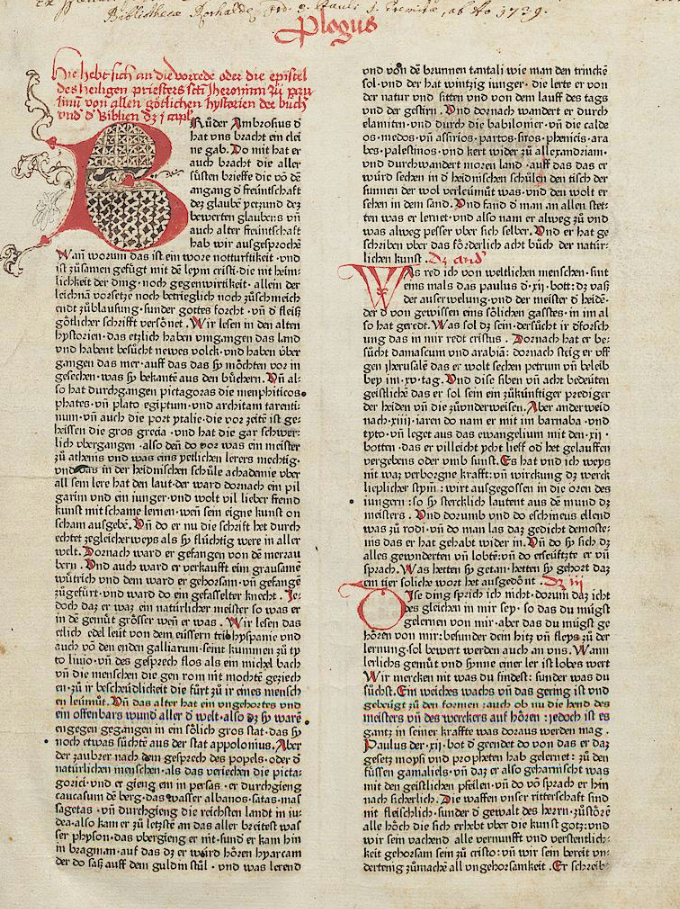 Bibliothecæ Rorhalde Ord. S. Pauli 1 Eremitæ, ab Ao 1739.
Plogus
Hie hebt sich an die vorrede oder die epistel
des heiligen priesters scti Jheronimi zů pau
linū von allen götlichen hystorien der bůch
vnd d' Biblien dz j capl
BRůder Ambrosius d'
hat vns bracht ein clei
ne gab. Do mit hat er
auch bracht die aller
süsten brieffe die võ dē
angang d' freüntschaft
dez glaubē yetzund dez
bewerten glaubens vñ
auch alter freuntschaft
hab wir ausgesprochē
Wañ worum das ist ein wore notturftikeit · vnd
ist zůsamen gefügt mit dē leym cristi: die nit heim-
lichkeit der ding · noch gegenwirtikeit · allein der
leichnā vorsetze noch betrieglich noch zůschmeich
endt zůblausung · sunder gottes forcht · vñ d' fleiß
götlicher schrifft versönet. Wir lesen in den alten
hystorien · das etzlich haben vmgangen das land
vnd habent besůcht newes volck · vnd haben über
gangen das mer · auff das das sy möchten vor in
gesechen · was sy bekantē aus den bůchern. Vñ al-
so hat durchgangen pictagoras die menphiticos
phates · vñ plato egiptum · vnd architam tarenti-
num · vñ auch die port ytalie · die vor zeitē ist ge-
heissen die gros grecia · vnd hat die gar schwer-
lich vbergangen · also den̄ do vor was ein meister
zů athenis vnd was eins yetlichen lerers mechtig ·
vnd was in der heidnischen schůle achademie vber
all sem lere hat den laut · der ward dornach ein pil
grarim vnd ein iunger · vnd wolt vil lieber fremd
kunst mit schame lernen · wen̄ sein eigne kunst on
scham ausgebē. Vñ do er nu die schrift het durch
echtet zegleicherweys als sy flüchtig were in aller
welt. Dornach ward er gefangen von de merrau
bern. Vnd auch ward er verkaufft ein grausamē
wůtrich vnd dem ward er gehorsam · vñ gefangē
zůgefürt · vnd ward do ein gefasselter knecht. Je-
doch daz er waz ein natürlicher meister so was er
in dē gemůt grösser wen̄ er was. Wir lesen das
etlich edel leüt von dem eüssern teil hyspanie vnd
auch vō den enden galliarum · seint kummen zů ty
to liuio · vñ des gesprech flos als ein michel bach
vñ die menschen die gen rom nit mochtē geziech
en · zů ir bescheüdlichkeit die fürt zů ir eines mensch
en leümůt. Vñ das alter hat ein vngehortes vnd
ein offenbars wund aller d' welt · also dz sy warē
engegen gegangen in ein sölich gros stat · das sy
noch etwas sůchtē aus der stat appolonius. Aber
der zaubrer nach dem gesprech des popels · oder d'
natürlichen menschen · als das veriechen die picta-
gorici · vnd er gieng ein in persas · er durchgieng
caucasum dē berg · das wasser albanos · satas · mas
sagetas · vñ durchgieng die reichsten landt in iu-
dea · also kam er zů letzstē an das aller breitest was
ser physon · das vbergieng er nit · sund' er kam hin
in bragman · auf das dz er würd hören hyarcam
der do saß auff dem guldin stůl · vnd was lerend
vnd von dē brunnen tantali wie man den trincke
sol · vnd der hat wintzig iunger · die lerte er von
der natur vnd sitten vnd von dem lauff des tags
vnd der gestirn. Vnd dornach wandert er durch
elamiten · vnd durch die babilonier · vñ die calde
os · medos · vñ assirios · partos · siros · phenicis · ara
bes · palestinos · vnd kert wider zů allexandriam ·
vnd durchwandert moren land · auff das das er
würd sechen in d' heidnischen schůlen den tisch der
sunnen der wol verleümůt was · vnd den wolt er
sehen in dem sand. Vnd fand d' man an allen stet-
ten was er lernet · vnd also nam er alweg zů vnd
was alweg pesser vber sich selber. Vnd er hat ge
schriben vber das förderlich acht bůch der natür-
lichen kunst. Dz and'
Was red ich von weltlichen menschen · sint
eins mals das paulus d' · xij · bott: dz vaß
der auserwelung · vnd der meister d' heidē ·
der d' von gewissen eins sölichen gasstes · in im al
so hat geredt. Was sol dz sein · dersůcht ir d'forsch
ung das in mir redt cristus. Dornach hat er be-
sůcht damascum vnd arabiā: dornach steig er vff
gen jherusalē das er wolt sechen petrum vñ beleib
bey im · xv · tag. Vnd dise siben vñ acht bedeüten
geistlichē das er sol sein ein zůkünftiger prediger
der heiden vñ die zůvnderweisen. Aber anderweid
nach · xiiij · iaren do nam er mit im barnaba · vnd
tyto · vñ leget aus das ewangelium mit den · xij ·
botten · das er villeicht ycht lieff od' het gelauffen
vergebens oder vmb sunst. Es hat vnd ich weys
nit waz verborgne krafft: vñ wirckung dz werck
lieplicher stym: wirt ausgegossen in die oren des
iungern: so sy stercklich lautent aus dē mund dz
meisters. Vnd dorumb vnd do eschineus ellend
was zů rodi · vñ do man las daz gedicht demoste-
nis das er hat gehabt wider in. Vñ do sy sich dz
alles gewnderten vñ lobtē: vñ do erseüfftze er vñ
sprach. Was hetten sy getan · hetten sy gehort daz
ein tier soliche wort het ausgedönt. Dz iij
DIse ding sprich ich nicht · dorum daz icht
des gleichen in mir sey · so das du mügst
gelernen von mir · aber das du mügst ge
hören von mir: besunder dein hitz vñ fleys zů der
lernung · sol bewert werden auch an vns. Wann
lerlichs gemůt vnd synne einer ler ist lobes wert
Wir mercken nit was du findest: sunder was du
sůchst. Ein weiches wachs vñ das gering ist vnd
gebeügt zů den formen: auch ob nu die hend des
meisters vñ des werckers auf hören: jedoch ist es
gantz in seiner kraffte was doraus werden mag.
Paulus der · xij · bot d' geendet do von das er daz
gesetz moysi vnd propheten hab gelernet: zů den
füssen gamaliels · vñ daz er also geharnischt was
mit den geistlichen pfeilen · vñ do võ sprach er hin
nach sicherlich. Die waffen vnser ritterschaft sind
nit fleischlich · sunder d' gewalt des herrn · zůstöre
alle höch die sich erhebt vber die kunst gotz: vnd
wir sein wachend alle vernunfft vnd verstentlich-
keit gehorsam sein zů cristo: vñ wir sein bereit vn-
derteng zůmachē all vngehorsamkeit. Er schreibt